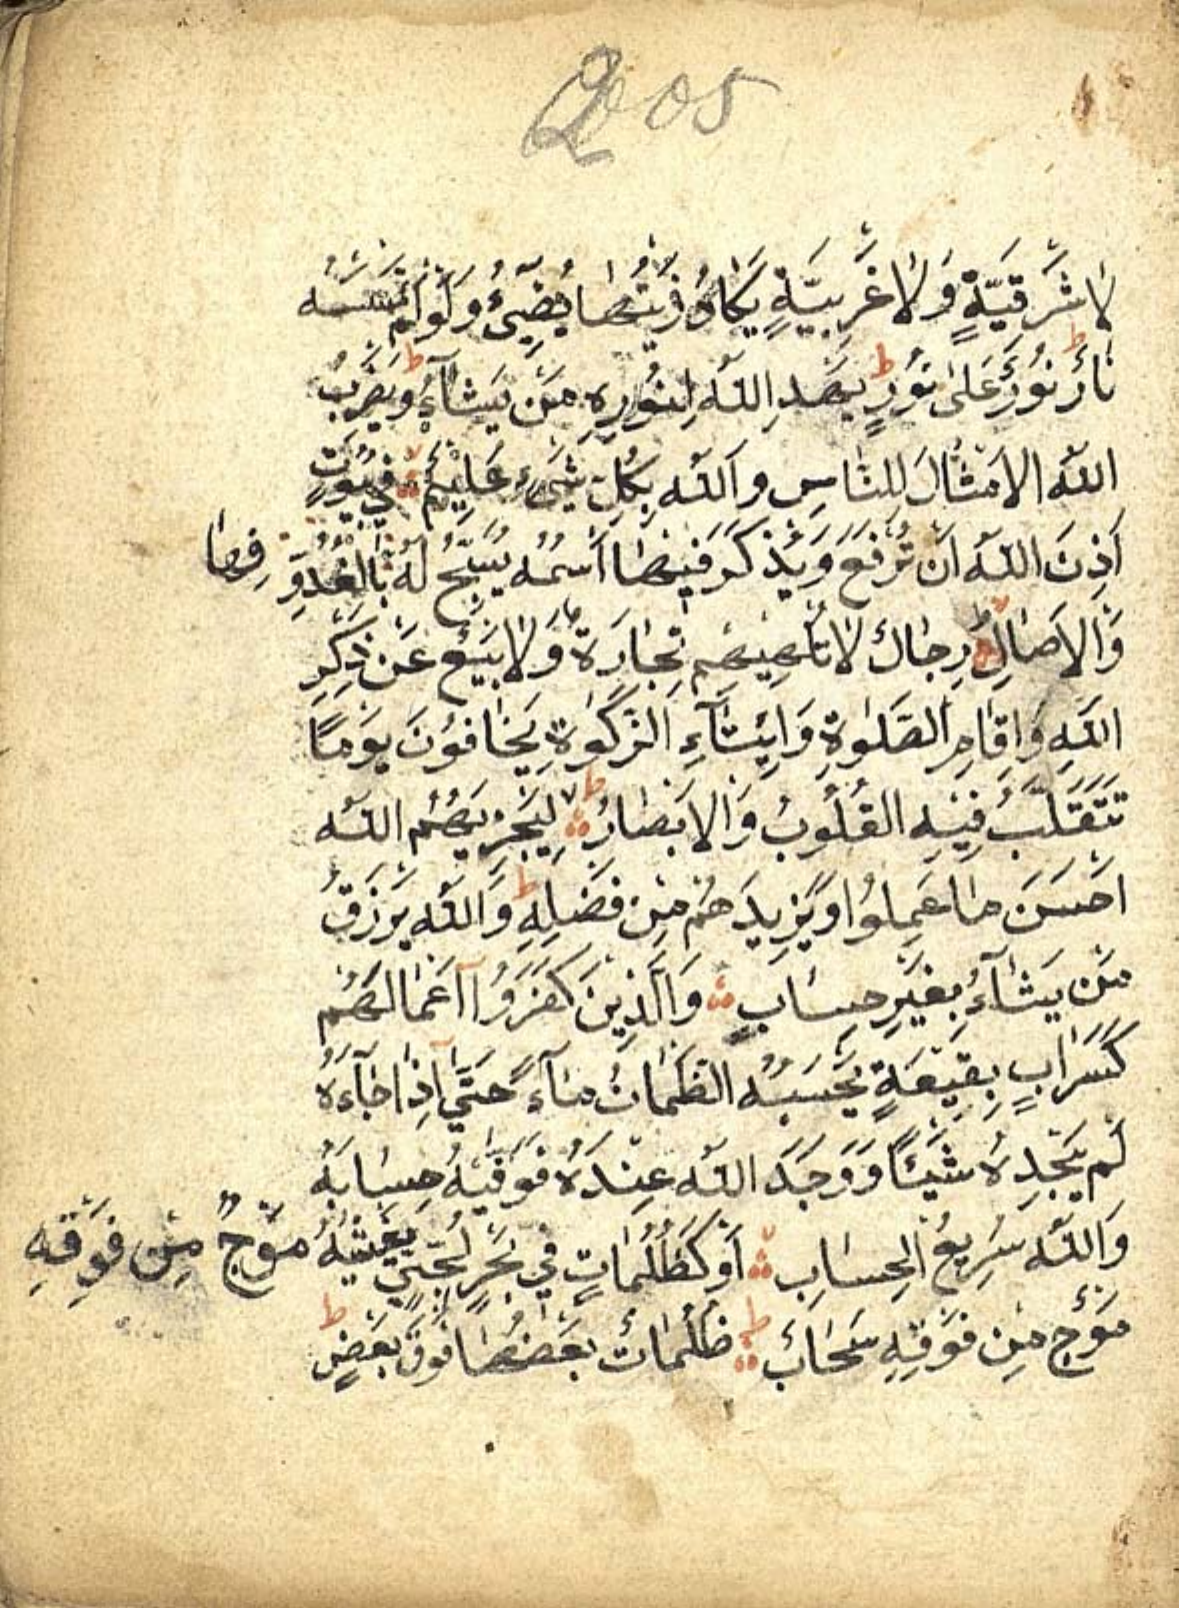 2005
لا شَرْقِيَّةٍ وَلا غَرْبِيَّةٍ يَكَادُ زَيْتُهَا يُضِيۤئُ وَلَوْ لَمْ تَمْسَسْهُ
نَارٌ نُورٌ عَلىٰ نُورٍ ط يَهْدِ اللّٰهُ لِنُورِهِ مَنْ يَشَآءُ ط وَيَضْرِبُ
اللّٰهُ الاَمْثَالَ لِلنَّاسِ وَاللّٰهُ بِكُلِّ شَيْءٍ عَلِيْمٌ فِي بُيُوتٍ
اَذِنَ اللّٰهُ اَنْ تُرْفَعَ وَيُذْكَرَ فِيْهَا اسْمُهُ يُسَبِّحُ لَهُ بِالْغُدُوِّ فِيهَا
وَالاَصَالِ رِجَالٌ لا تُلْهِيْهِمْ تِجَارَةٌ وَلا بَيْعٌ عَنْ ذِكْرِ
اللّٰهِ وَاِقَامِ الصَّلٰوةِ وَاِيْتَآءِ الزَّكٰوةِ يَخَافُوْنَ يَوْمًا
تَتَقَلَّبُ فِيْهِ القُلُوْبُ وَالاَبْصَارُ ط لا لِيَجْزِيَهُمُ اللّٰهُ
اَحْسَنَ مَا عَمِلُوا وَيَزِيدَهُمْ مِنْ فَضْلِهِ ط وَاللّٰهُ يَرْزُقُ
مَنْ يَشَآءُ بِغَيْرِ حِسَابٍ وَالَّذِيْنَ كَفَرُوآ اَعْمَالُهُمْ
كَسَرَابٍ بِقِيْعَةٍ يَحْسَبُهُ الظَّمْاٰنُ مَآءً حَتّٰىٓ اِذَا جَآءَهُ
لَمْ يَجِدْهُ شَيْئًا وَوَجَدَ اللّٰهَ عِنْدَهُ فَوَفّٰيهُ حِسَابَهُ
وَاللّٰهُ سَرِيعُ الْحِسَابِ اَوْ كَظُلُمَاتٍ فِي بَحْرٍ لُجِّيٍّ يَغْشٰيهُ مَوْجٌ مِنْ فَوْقِهِ
مَوْجٌ مِنْ فَوْقِهِ سَحَابٌ ط ظُلُمَاتٌ بَعْضُهَا فَوْقَ بَعْضٍ ط